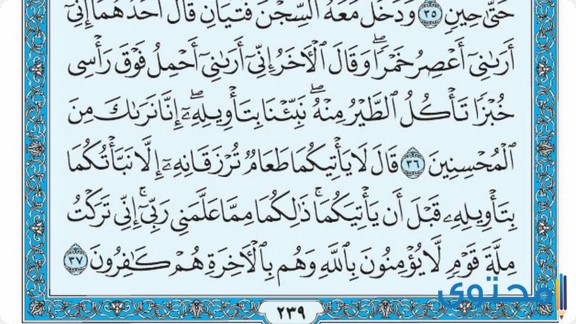 حَتَّىٰ حِينٍ ٣٥ وَدَخَلَ مَعَهُ ٱلسِّجْنَ فَتَيَانِ قَالَ أَحَدُهُمَآ إِنِّيٓ
أَرَىٰنِيٓ أَعْصِرُ خَمْرًا ۖ وَقَالَ ٱلْأَخَرُ إِنِّيٓ أَرَىٰنِيٓ أَحْمِلُ فَوْقَ رَأْسِي
خُبْزًا تَأْكُلُ ٱلطَّيْرُ مِنْهُ ۖ نَبِّئْنَا بِتَأْوِيلِهِۦٓ ۖ إِنَّا نَرَىٰكَ مِنَ
ٱلْمُحْسِنِينَ ٣٦ قَالَ لَا يَأْتِيكُمَا طَعَامٌ تُرْزَقَانِهِۦٓ إِلَّا نَبَّأْتُكُمَا
بِتَأْوِيلِهِۦ قَبْلَ أَن يَأْتِيَكُمَا ۚ ذَٰلِكُمَا مِمَّا عَلَّمَنِي رَبِّيٓ ۚ إِنِّي تَرَكْتُ
مِلَّةَ قَوْمٍ لَّا يُؤْمِنُونَ بِٱللَّهِ وَهُم بِٱلْأَخِرَةِ هُمْ كَٰفِرُونَ ٣٧
٢٣٩
محتوى